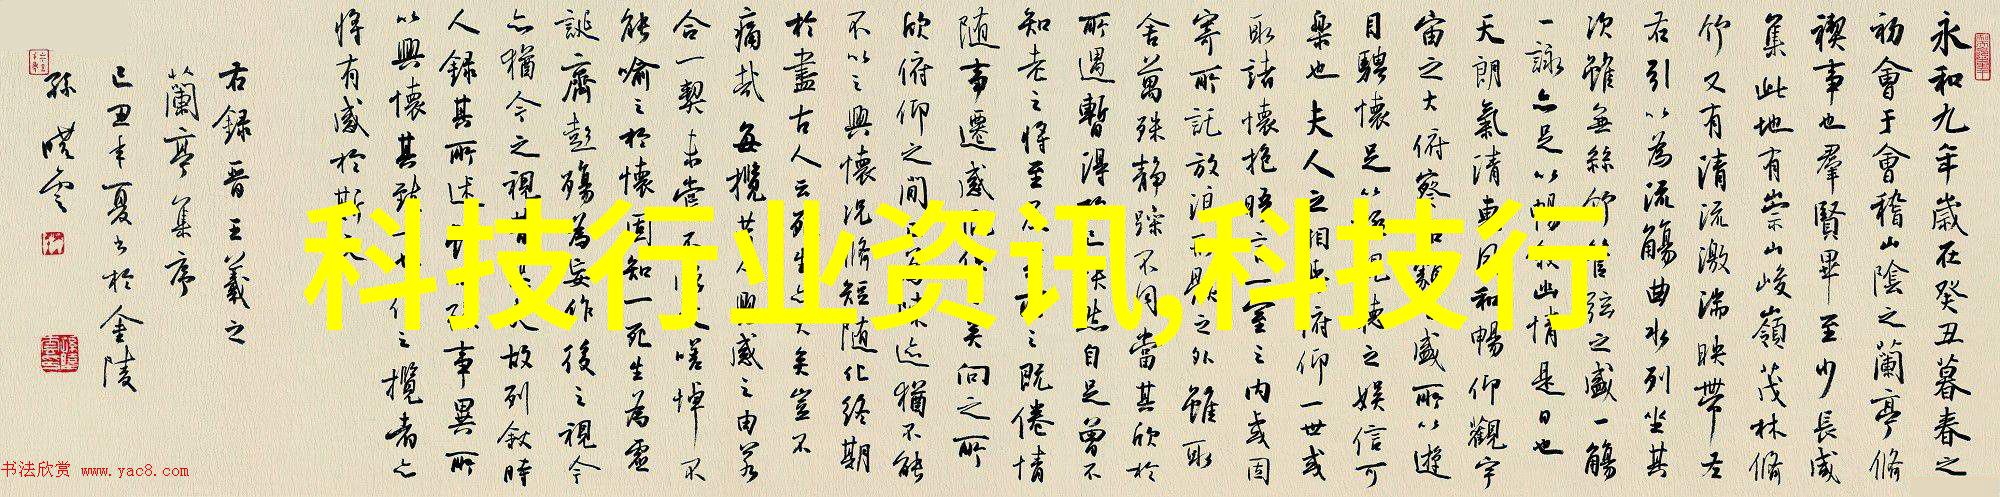 永和九年歲在癸丑暮春之
初會于會稽山陰之蘭亭脩
禊事也羣賢畢至少長咸
集此地有崇山峻嶺茂林脩
竹又有清流激湍映帶左
右引以為流觴曲水列坐其
次雖無絲竹管弦之盛一觴
一詠亦足以暢敘幽情是日也
天朗氣清惠風和暢仰觀宇
宙之大俯察品類之盛所以遊
目騁懷足以極視聽之娛信可
樂也夫人之相與俯仰一世或
取諸懷抱晤言一室之內或因
寄所託放浪形骸之外雖取
舍萬殊靜躁不同當其欣於
所遇暫得於己快然自足曾不
知老之將至及其所之既倦情
隨事遷感慨係之矣向之所
欣俯仰之間已為陳迹猶不能
不以之興懷況脩短隨化終期
於盡古人云死生亦大矣豈不
痛哉每攬昔人興感之由若
合一契未嘗不臨文嗟悼不
能喻之於懷固知一死生為虛
誕齊彭殤為妄作後之視今
亦猶今之視昔悲夫故列敘時
人錄其所述雖世殊事異所
以興懷其致一也後之攬者亦
將有感於斯文
右錄晉王羲之
蘭亭集序
己丑年夏書於金陵
孫曉雲
科技行业资讯,科技行
书法欣赏 www.yac8.com